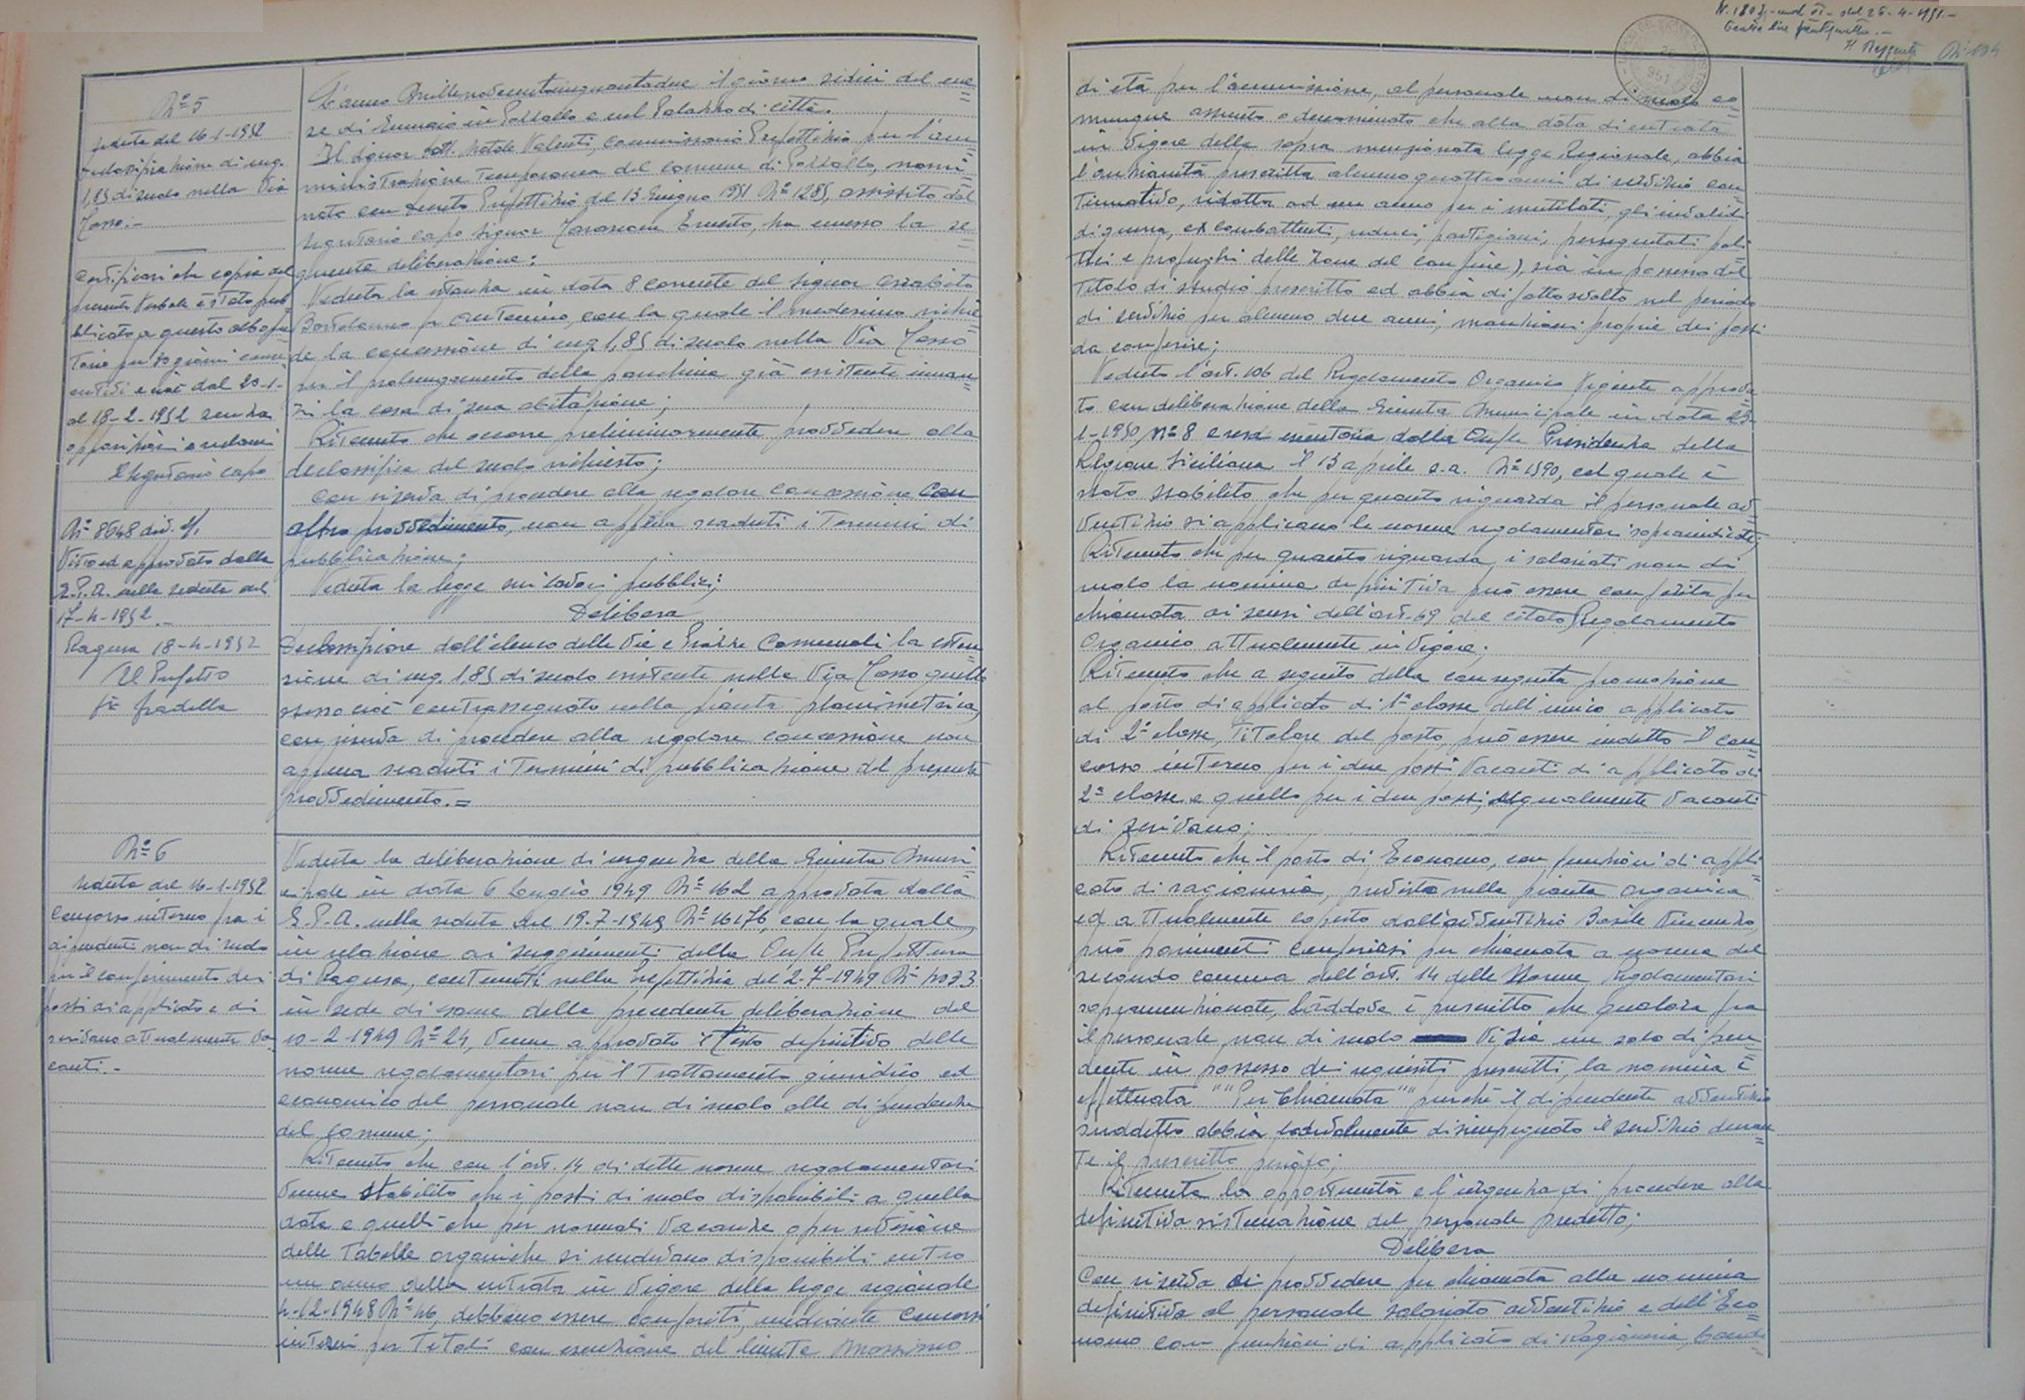 Nº 5
seduta del 16-1-1952
declassificazione di mq.
1,85 di suolo nella Via
Tasso.-
Certificasi che copia del
presente Verbale è stato pub
blicato a questo albo pre
torio per 30 giorni conse
cutivi e cioè dal 20-1-
al 18-2-1952 senza
opposizioni o reclami
Il Segretario capo
Nº 8648 div. 4/1
Visto ed approvato dalla
G.P.A. nella seduta del
17-4-1952.-
Ragusa 18-4-1952
Il Prefetto
fto
L'anno Millenovecentocinquantadue il giorno sedici del me=
se di Gennaio in Pozzallo e nel Palazzo di città.
Il signor Dott. Natale Valenti, Commissario Prefettizio per l'am=
ministrazione temporanea del comune di Pozzallo, nomi=
nato con decreto Prefettizio del 13 Giugno 1951 Nº 1285, assistito dal
segretario capo signor Ernesto, ha emesso la se=
guente deliberazione:
Veduta la istanza in data 8 corrente del signor
Bartolomeo fu Antonino, con la quale il medesimo richie
de la concessione di mq 1,85 di suolo nella Via Tasso
per il prolungamento della panchina già esistente innan=
zi la casa di sua abitazione;
Ritenuto che occorre preliminarmente provvedere alla
declassifica del suolo richiesto;
con riserva di procedere alla regolare concessione con
altro provvedimento, non appena scaduti i termini di
pubblicazione;
Veduta la legge sui lavori pubblici;
Delibera
Declassificare dall'elenco delle Vie e Piazze Comunali la esten
sione di mq. 1,85 di suolo esistente nella Via Tasso quello
stesso cioè contrassegnato nella pianta planimetrica,
con riserva di procedere alla regolare concessione non
appena scaduti i termini di pubblicazione del presente
provvedimento.=
Nº 6
seduta del 16-1-1952
Concorso interno fra i
dipendenti non di ruolo
per il conferimento dei
posti di applicato e di
scrivano attualmente va
canti.-
Veduta la deliberazione di urgenza della Giunta Muni
cipale in data 6 Luglio 1949 Nº 162 approvata dalla
G.P.A. nella seduta del 19-7-1949 Nº 16176, con la quale,
in relazione ai suggerimenti della On/le Prefettura
di Ragusa, contenuti nella prefettizia del 2-7-1949 Nº
in sede di esame della precedente deliberazione del
10-2-1949 Nº 24, venne approvato il testo definitivo delle
norme regolamentari per il trattamento giuridico ed
economico del personale non di ruolo alle dipendenze
del Comune;
Ritenuto che con l'art. 14 di dette norme regolamentari
venne stabilito che i posti di ruolo disponibili a quella
data e quelli che per normali vacanze o per revisione
delle tabelle organiche si rendevano disponibili entro
un anno dalla entrata in vigore della legge regionale
4-12-1948 Nº 46, debbono essere conferiti, mediante concorsi
interni per titoli con esenzione del limite massimo
N. 1803 - mod VI - del 26-4-1951.-
Il Reggente
di età per l'ammissione, al personale non di ruolo co=
munque assunto o denominato che alla data di entrata
in vigore della sopra menzionata legge Regionale, abbia
l'anzianità prescritta almeno quattro anni di servizio con
tinuativo, ridotta ad un anno per i mutilati, gli invalidi
di guerra, ex combattenti, reduci, partigiani, perseguitati poli
tici e profughi delle zone del confine), sia in possesso del
titolo di studio prescritto ed abbia di fatto svolto nel periodo
di servizio per almeno due anni, mansioni proprie dei posti
da conferire;
Veduto l'art. 106 del Regolamento Organico vigente approva
to con deliberazione della Giunta Municipale in data 23-
1-1950 Nº 8 e resa esecutoria dalla On/le Presidenza della
Regione Siciliana il 13 aprile s.a. Nº 1590, col quale è
stato stabilito che per quanto riguarda il personale av
ventizio si applicano le norme regolamentari sopraindicate;
Ritenuto che per quanto riguarda i salariati non di
ruolo la nomina definitiva può essere conferita per
chiamata ai sensi dell'art. 69 del citato Regolamento
Organico attualmente in vigore;
Ritenuto che a seguito della conseguita promozione
al posto di applicato di 1ª classe dell'unico applicato
di 2ª classe, titolare del posto, può essere indetto il con
corso interno per i due posti vacanti di applicato di
2ª classe e quello per i due posti, egualmente vacanti
di scrivano;
Ritenuto che il posto di Economo, con funzioni di appli
cato di ragioneria, previsto nella pianta organica
ed attualmente coperto dall'avventizio Basile Vincenzo,
può parimenti conferirsi per chiamata a norma del
secondo comma dell'art. 14 delle Norme regolamentari
sopramenzionate, laddove è prescritto che qualora fra
il personale non di ruolo vi sia un solo dipen
dente in possesso dei requisiti prescritti, la nomina è
effettuata ""Per Chiamata"" purché il dipendente avventizio
suddetto abbia lodevolmente disimpegnato il servizio duran
te il prescritto periodo;
Ritenuta la opportunità e l'urgenza di procedere alla
definitiva sistemazione del personale predetto;
Delibera
Con riserva di provvedere per chiamata alla nomina
definitiva al personale salariato avventizio e dell'Eco=
nomo con funzioni di applicato di Ragioneria, bandi=